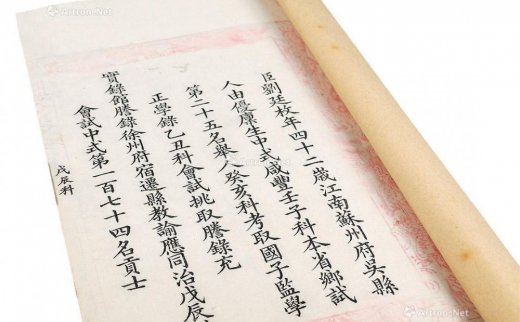 臣劉廷枚年四十二歲江南蘇州府吳縣
人由優廩生中式咸豐壬子科本省鄉試
第二十五名舉人癸亥科考取國子監學
正學錄乙丑科會試挑取謄錄充
實錄館謄錄徐州府宿遷縣教諭應同治戊辰
會試中式第一百七十四名貢士
戊辰科
Artron.Net
Artron.Net